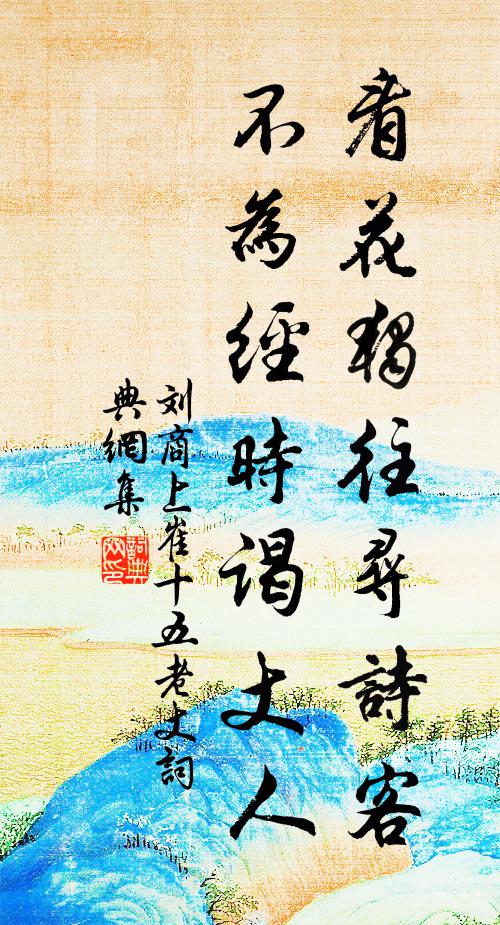 看花獨往尋詩客
不為經時謁丈人
刘商上崔十五老丈詞
典網集
詞典